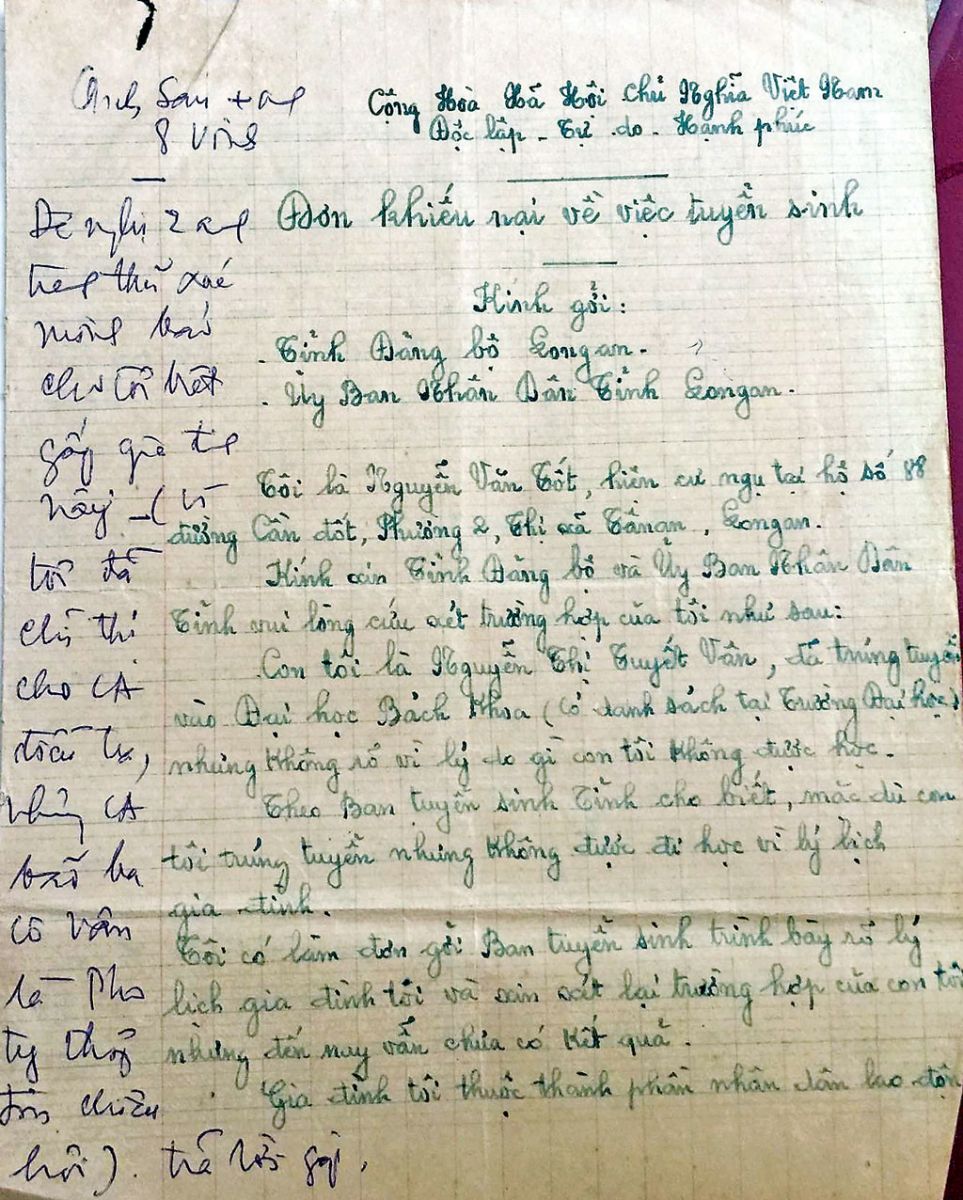 Cộng Hoà Xã Hội Chủ Nghĩa Việt Nam
Độc lập - Tự do - Hạnh phúc
Đơn khiếu nại về việc tuyển sinh
Kính gởi:
- Tỉnh Đảng bộ Longan.
- Ủy Ban Nhân Dân Tỉnh Longan.
Tôi là Nguyễn Văn Tốt, hiện cư ngụ tại hộ số 88
đường Cần đốt, Phường 2, Thị xã Tânan, Longan.
Kính xin Tỉnh Đảng bộ và Ủy Ban Nhân Dân
Tỉnh vui lòng cứu xét trường hợp của tôi như sau:
Con tôi là Nguyễn Thị Tuyết Vân, đã trúng tuyển
vào Đại học Bách Khoa (có danh sách tại Trường Đại học)
nhưng không rõ vì lý do gì con tôi không được học.
Theo Ban tuyển sinh Tỉnh cho biết, mặc dù con
tôi trúng tuyển nhưng không được đi học vì lý lịch
gia đình.
Tôi có làm đơn gởi Ban tuyển sinh trình bày rõ lý
lịch gia đình tôi và xin xét lại trường hợp của con tôi
nhưng đến nay vẫn chưa có kết quả.
Gia đình tôi thuộc thành phần nhân dân lao độn
Đề nghị 2 anh
cho tôi biết
gấp
này - (vì
tôi đã
chỉ thị
cho CA
điều tra,
nhưng CA
báo ba
cô Vân
là Phó
ty
chiêu
hồi). trả lời gấp,